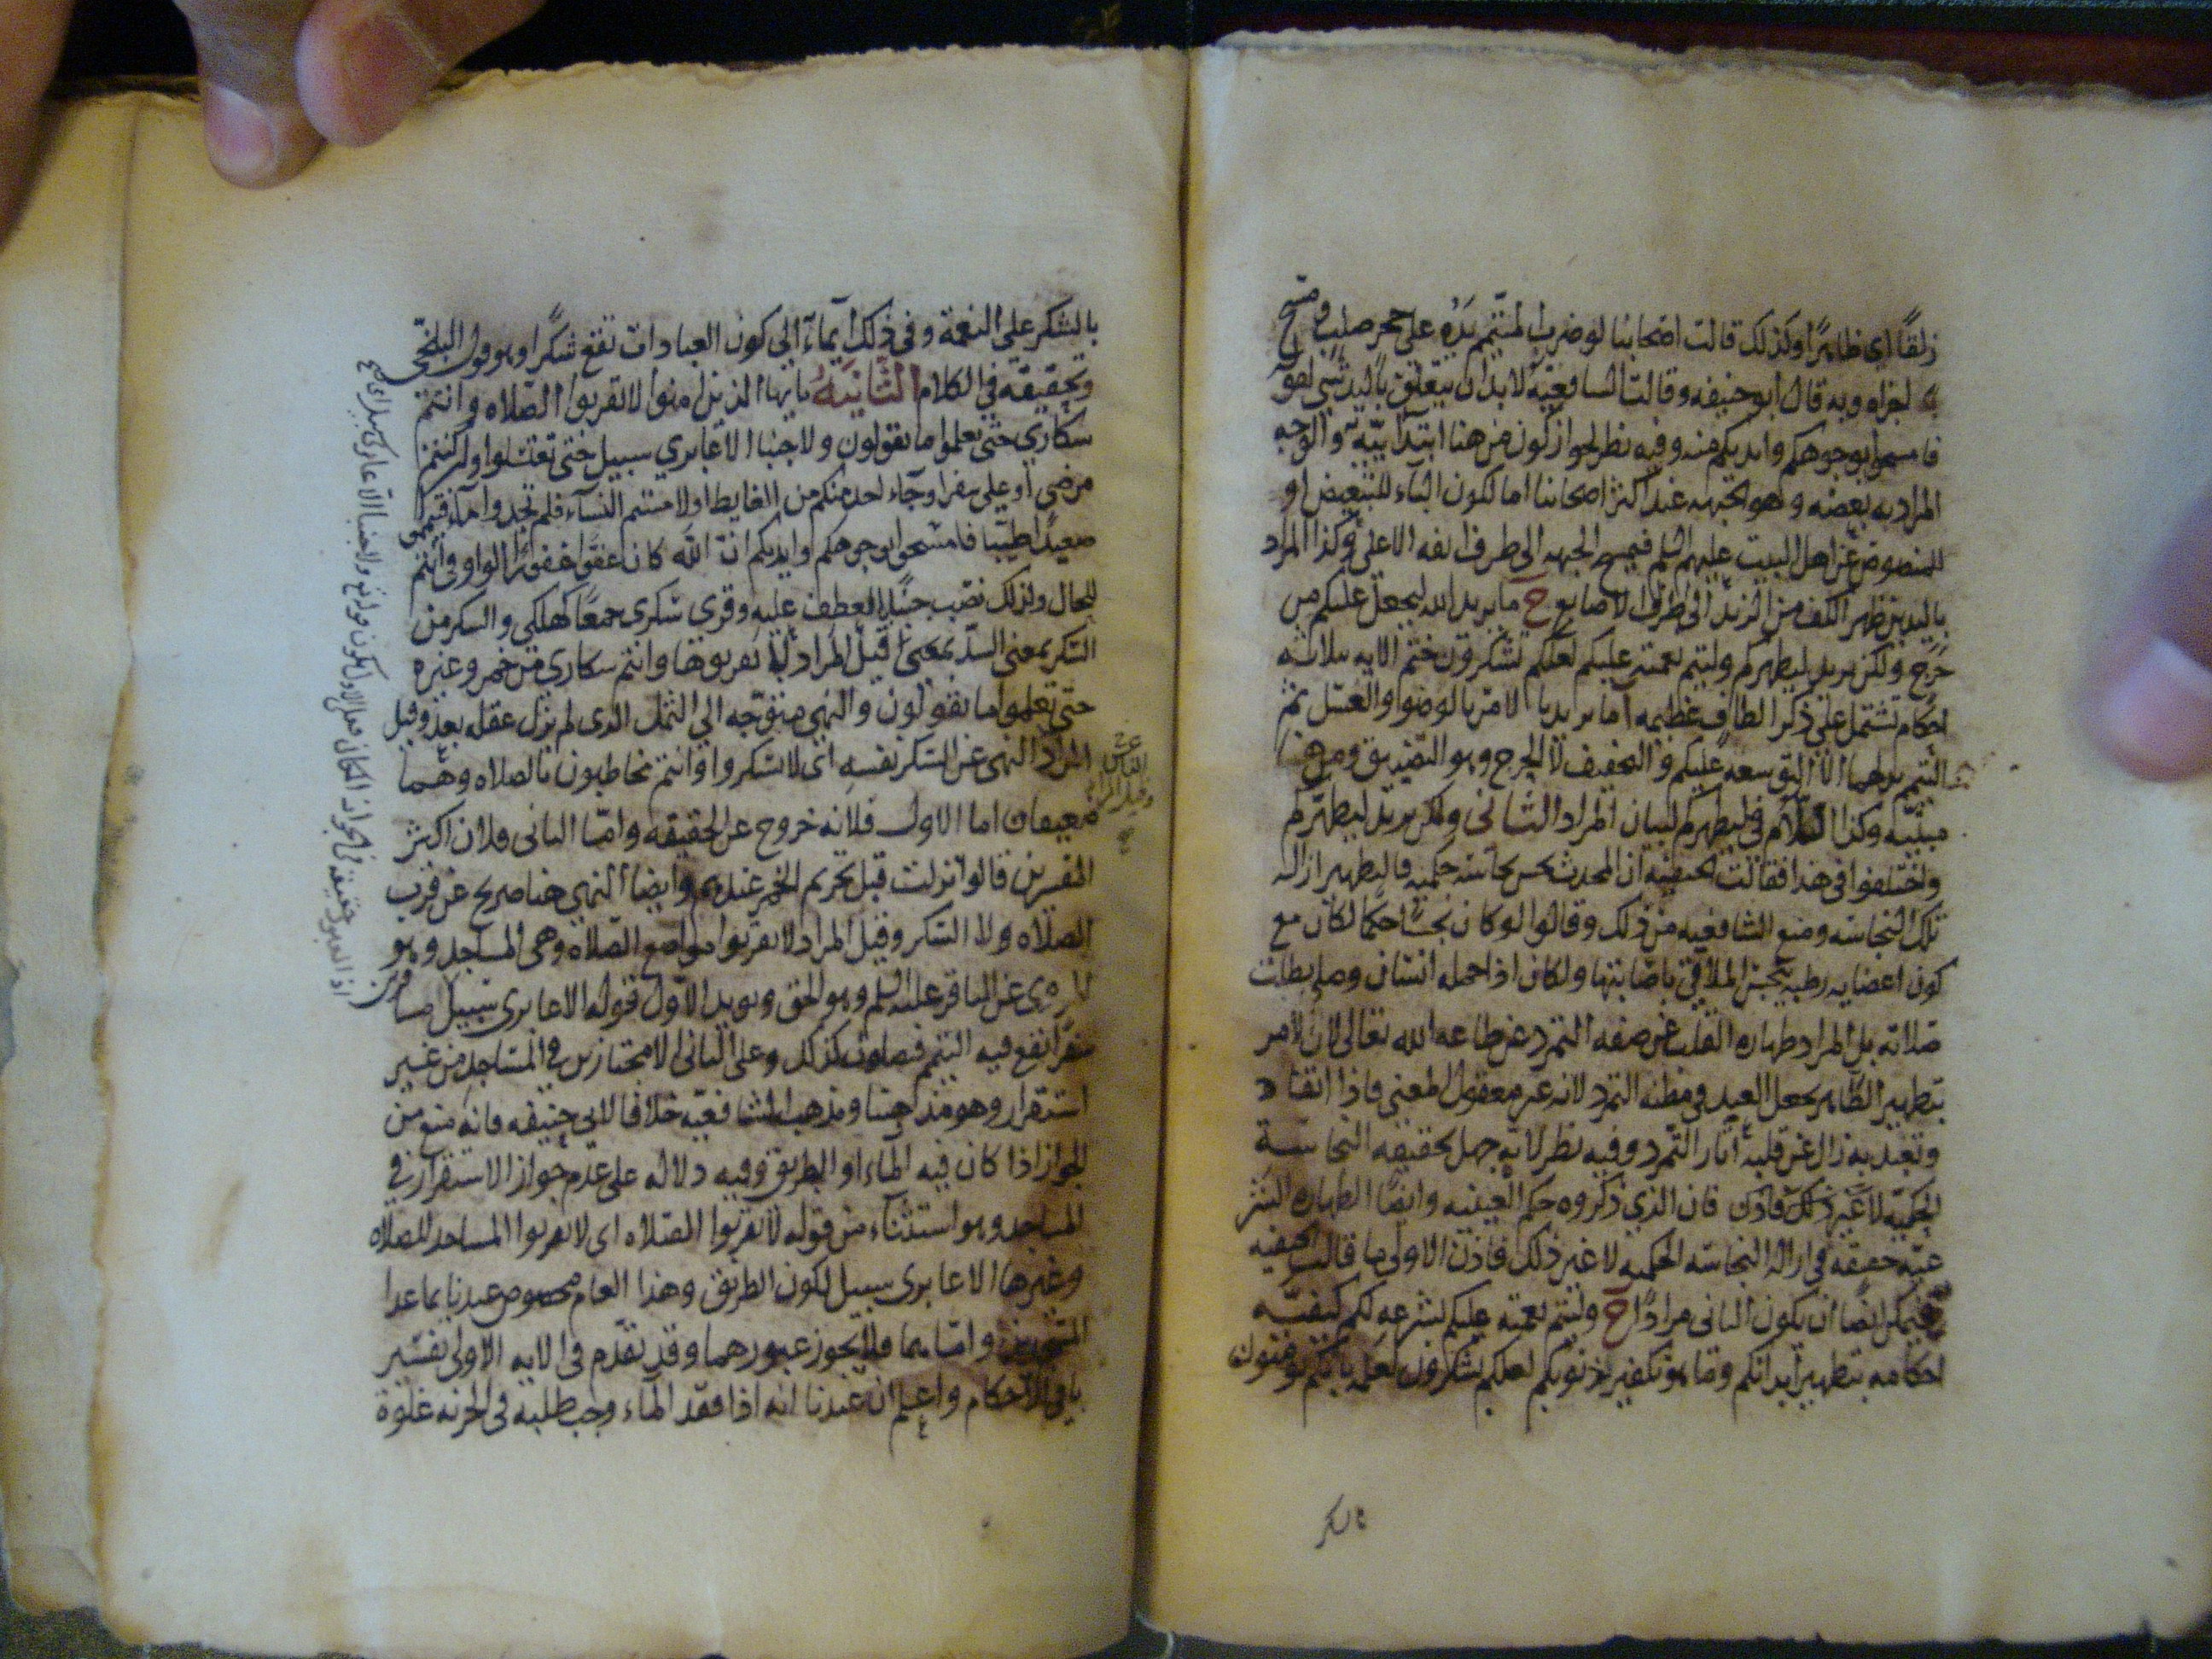 زلقًا اي ظاهرًا ولذلك قالت اصحابنا لو ضرب المتيمم يده على حجر صلب ومسح
اجزاه وبه قال ابو حنيفه وقالت الشافعيّة لا بد ان يتعلق باليد شي لقوله
فامسحوا بوجوهكم وايديكم منه وفيه نظر لجواز كون من هنا ابتدائيّة والوجه
المراد به بعضه وهو الجبهه عند اكثر اصحابنا اما لكون الباء للتبعيض او
للنصوص عن اهل البيت عليهم السلم فيمسح الجبهه الى طرف انفه الاعلى وكذا المراد
باليدين ظهر الكف من الزند الى اطراف الاصابع ح ما يريد الله ليجعل عليكم من
حرج ولكن يريد ليطهركم وليتم نعمته عليكم لعلكم تشكرون ختم الايه بثلاثه
احكام تشتمل على ذكر الطاف عظيمه آ ما يريد با لامر بالوضوا والغسل ثم
التيمم بدلهما الا التوسعه عليكم والتخفيف لا الحرج وهو التضييق ومن
مبيّنه وكذا اللام في ليطهركم لبيان المراد الثاني ولكن يريد ليطهّركم
واختلفوا في هذا فقالت الحنفيّه ان المحدث نجس نجاسه حكميه فالتطهير ازاله
تلك النجاسه ومنع الشافعيه من ذلك وقالوا لو كان نجسًا حكمًا لكان مع
كون اعضايه رطبه ينجس الملاقي باصابتها ولكان اذا حمله انسان وصلى بطلت
صلاته بل المراد طهاره القلب عن صفه التمرد عن طاعه الله تعالى لان الامر
بتطهير الظاهر يجعل العبد في مظنه التمرد لانه غير معقول المعنى فاذا انقاد
وتعبد به زال عن قلبه آثار التمرد وفيه نظر لانه جهل بحقيقه النجاسة
الحكميّه لا غير ذلك فاذن فان الذي ذكروه حكم العينيه وايضًا الطهاره الشر
عيّه حقيقه في ازاله النجاسه الحكميه لا غير ذلك فاذن الاولى ما قالت الحنفيه
فيمكن ايضًا ان يكون الثاني مرادًا ح وليتم نعمته عليكم بشرعه لكم كيفيّه
احكامه بتطهير ابدانكم وما هو تكفير ذنوبكم لعلكم تشكرون لعلكم
بالشكر
بالشكر على النعمة وفي ذلك ايماءٌ الى كون العبادات تقع شكرًا وهو قول البلخي
وتحقيقه في الكلام الثانيَه يا ايها الذين امنوا لا تقربوا الصّلاه وانتم
سكارى حتى تعلموا ما تقولون ولا جنبا الا عابري سبيل حتى تغتسلوا وان كنتم
مرضى او على سفر او جاء احد منكم من الغايط او لامستم النسآء فلم تجدوا مآء فتيمموا
صعيدًا طيّبا فامسحوا بوجوهكم وايديكم انّ الله كان عفوّا غفورًا الواو في انتم
للحال ولذلك نصب جنبًا بالعطف عليه وقرى سَكرى جمعًا كهلكى والسكر من
السّكر بمعنى السدّ قيل المراد لا تقربوها وانتم سكارى من خمر وغيره
حتى تعلموا ما تقولون والنهي متوّجه الى الثمل الذي لم يزل عقله بعد وقيل
المراد النهى عن السّكر نفسه اى لا تسكروا وانتم مخاطبون بالصلاه وهما
ضعيفان اما الاول فلانه خروج عن الحقيقه وامّا الثاني فلان اكثر
المفسرين قالوا نزلت قبل تحريم الخمر عندهم وايضا النهي هنا صريح عن قرب
الصلاه ولا السّكر وقيل المراد لا تقربوا مواضع الصّلاه وهى المساجد وهو
المروى عن الباقر عليه السلم وهو الحق ويويد الاول قوله الا عابرى سبيل مسافرين
سفرًا يقع فيه التيمم فيصلون كذلك وعلى الثانى الا مجتازين في المساجد من غير
استقرار وهو مذهبنا ومذهب الشافعيّه خلافا لابي حنيفه فانه منع من
الجواز اذا كان فيه الماء او الطريق وفيه دلاله على عدم جواز الاستقرار في
المساجد وهو استثناء من قوله لا تقربوا الصّلاه اى لا تقربوا المساجد للصلاه
وغيرها الا عابرى سبيل لكون الطريق وهذا العام مخصوص عندنا بما عدا
المسجدين وامّا هما فلا يجوز عبورهما وقد تقدّم فى الايه الاولى تفسير
باقى الاحكام واعلم انّ عندنا انه اذا فقد الماء وجب طلبه فى الحزنه غلوة